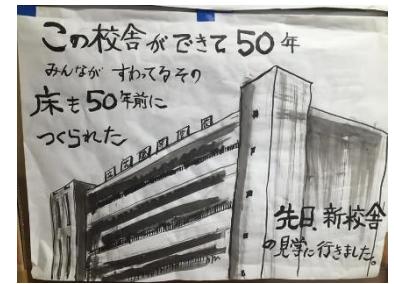 この校舎ができて50年
みんなが すわってるその
床も50年前に
つくられた
先日、新校舎
の見学に行きました。